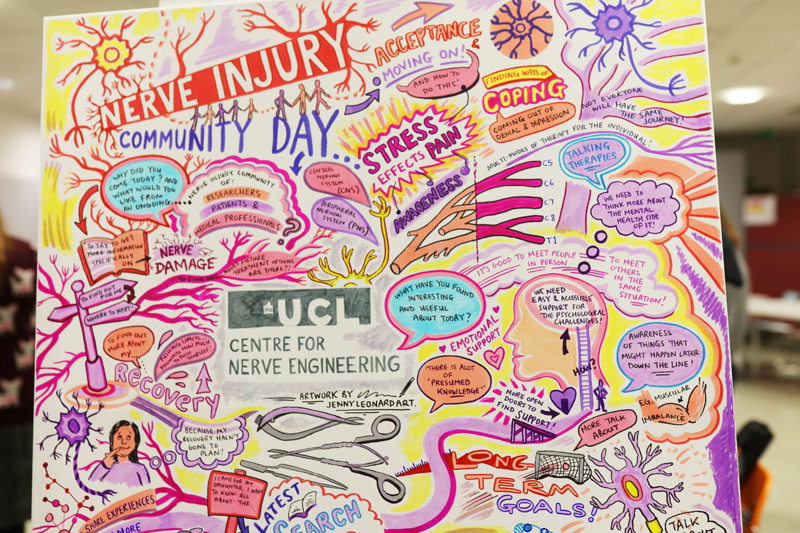 NERVE INJURY
COMMUNITY DAY...
ACCEPTANCE &
MOVING ON!
AND HOW TO
DO THIS!
FINDING WAYS OF
COPING
COMING OUT OF
DENIAL & DEPRESSION
NOT EVERYONE
WILL HAVE
THE SAME
JOURNEY!
STRESS
EFFECTS PAIN
MULTI-MODES OF THERAPY FOR THE INDIVIDUAL!
TALKING
THERAPIES
WHY DID YOU
COME TODAY? AND
WHAT WOULD YOU
LIKE FROM
AN ONGOING.....
NERVE INJURY COMMUNITY
OF:
RESEARCHERS
PATIENTS &
MEDICAL PROFESSIONALS
?
CENTRAL
NERVOUS
SYSTEM
(CNS)
PERIPHERAL
NERVOUS
SYSTEM (PNS)
AWARENESS
C5
C6
C7
C8
T1
WE NEED TO
THINK MORE ABOUT
THE MENTAL
HEALTH SIDE
OF IT!
SO TRY TO GET
MORE INFORMATION
SPECIFICALLY ON
NERVE
DAMAGE
WHAT FUTURE
TREATMENT OPTIONS
ARE THERE?!
IT'S GOOD TO MEET PEOPLE
IN PERSON
TO MEET
OTHERS
IN THE
SAME
SITUATION!
TO FIND OUT
FOR ME
WHERE TO NEXT!
UCL
CENTRE FOR
NERVE ENGINEERING
WHAT HAVE YOU FOUND
INTERESTING
AND USEFUL
ABOUT TODAY?
WE NEED
EASY & ACCESSIBLE
SUPPORT FOR
THE PSYCHOLOGICAL
CHALLENGES!
EMOTIONAL
SUPPORT
AWARENESS
OF THINGS THAT
MIGHT HAPPEN LATER
DOWN THE LINE!
TO FIND OUT
MORE ABOUT
MY....
RECOVERY
THERE IS ALOT
OF
'PRESUMED
KNOWLEDGE'
HOW?
MORE OPEN
DOORS TO
FIND SUPPORT!
E.G. MUSCULAR
IMBALANCE
ARTWORK BY
JENNYLEONARDART.
BECAUSE MY
RECOVERY HASN'T
GONE TO
PLAN!
MORE TALK
ABOUT
I CAME FOR MY
DAUGHTER, I WANT
TO KNOW ALL
ABOUT - THE
LONG
TERM
GOALS!
SHARE EXPERIENCES
MORE
LATEST
TALK